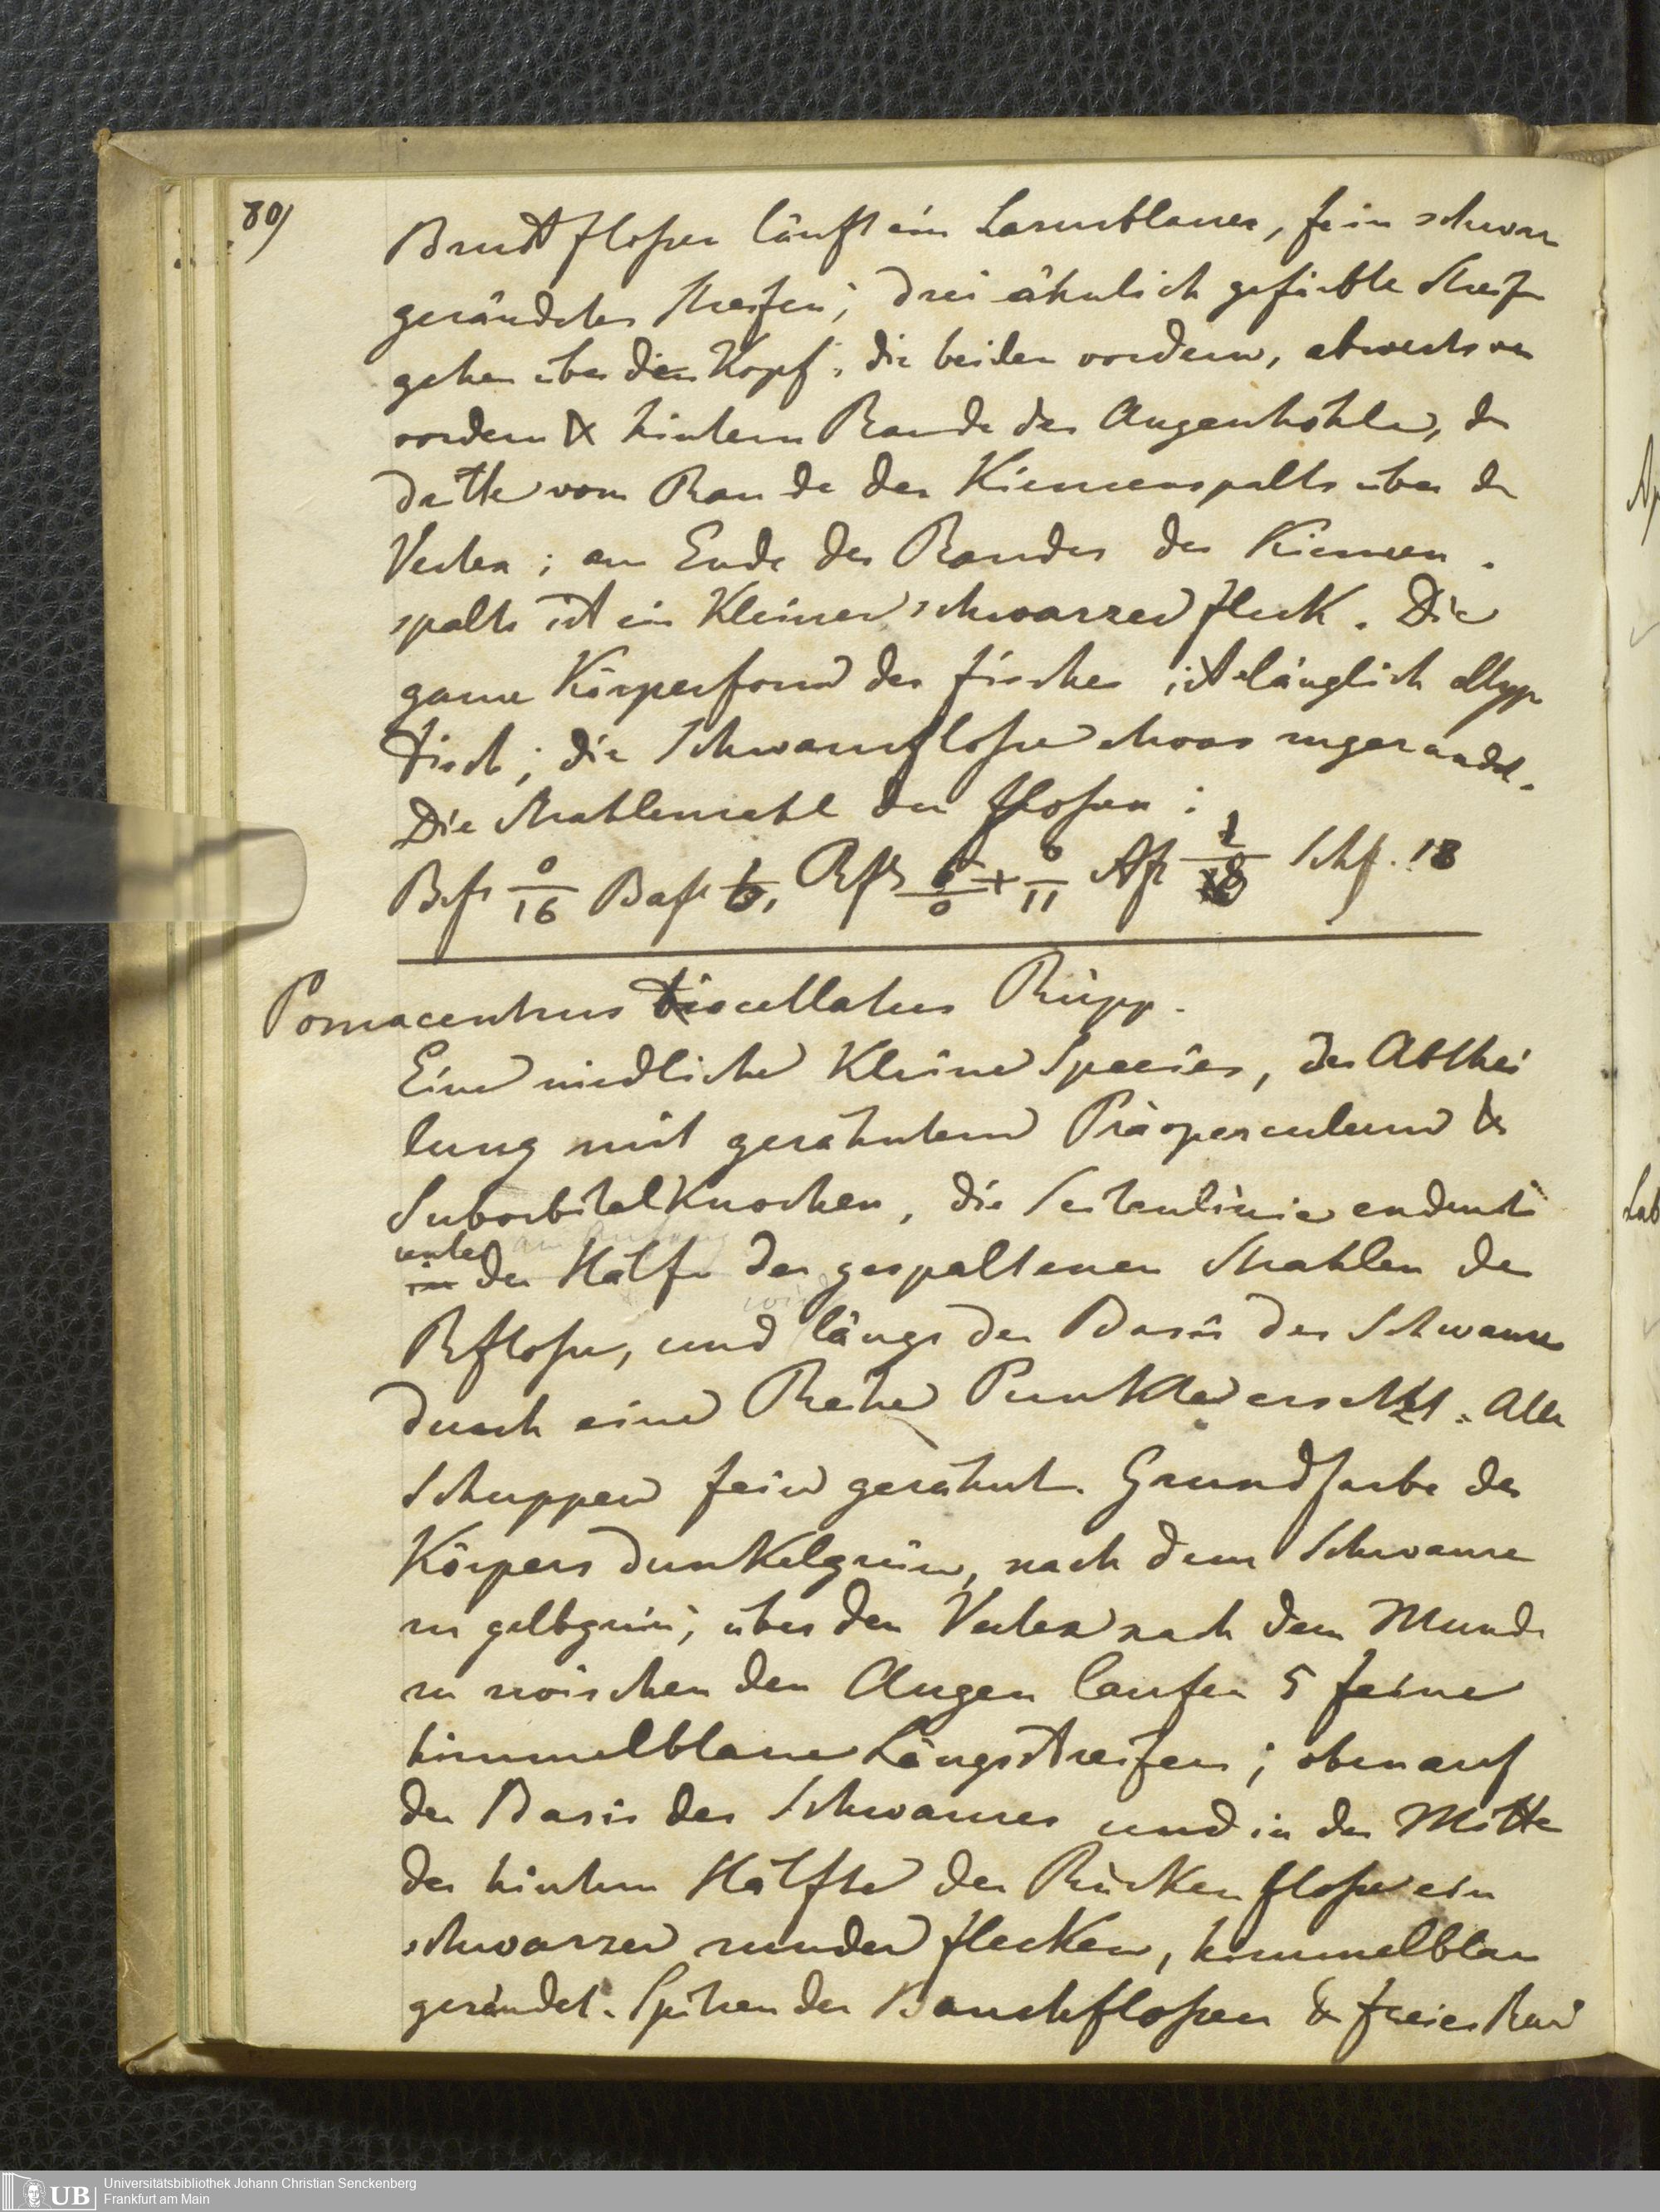 80)
Brustfloßen läuft ein Lasurblauer, fein schwarz
gerändeter Streifen; drei ähnlich gefärbte Streifen
gehen über den Kopf; die beiden vordern, abwerts von
vordern & hintern Rande der Augenhöhle, der
dritte vom Rande des Kiemenspalts über den
Vertex; am Ende des Randes des Kiemen-
spalts ist ein kleiner schwarzer Fleck. Die
ganze Körperform des Fisches ist länglich ellyp
tisch; die Schwanzfloße etwas zugerundet.
Die Strahlenzahl der Floßen:
Brfl 0/16 Bafl Rfl /0 + 6/11 Afl Schf. 18
Pomacentrus biocellatus Rüpp.
Eine niedliche kleine Species, der Abthei
lung mit gezähntem Präoperculum &
Suborbitalknochen, die Seitenlinie endend
unter am Anfang
in der Hälfte der gespaltenen Strahlen der
wird
Rfloße, und längs der Basis des Schwanzes
durch eine Reihe Punkte ersetzt. Alle
Schuppen fein gezähnt. Grundfarbe des
Körpers dunkelgrün, nach dem Schwanze
zu gelbgrün; über den Vertex nach dem Munde
zu zwischen den Augen laufen 5 feine
himmelblaue Längsstreifen; oben auf
der Basis des Schwanzes und in der Mitte
der hintern Hälfte der Rückenfloße ein
schwarzer runder Flecken, himmelblau
gerändet. Spitzen der Bauchfloßen & freier Rand
Lab
Universitätsbibliothek Johann Christian Senckenberg
Frankfurt am Main
UB